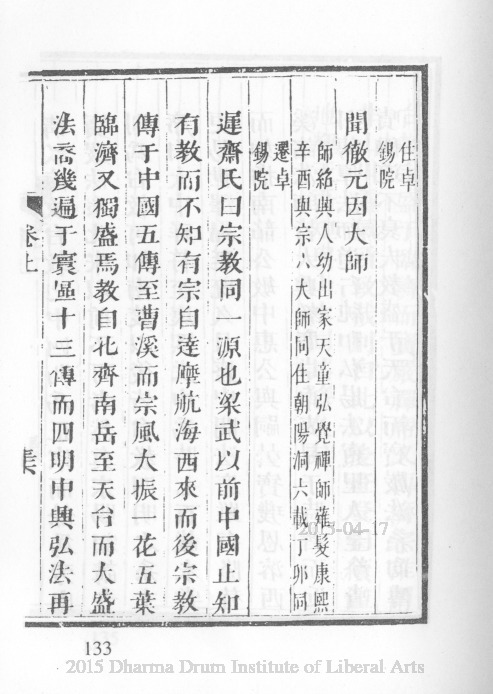 住卓
錫院
聞徹元因大師
師紹興人幼出家天童弘覺禪師薙髮康熙
辛酉與宗八大師同住朝陽洞六載丁卯同
遷卓
錫院
遲齋氏曰宗教同一源也梁武以前中國止知
有教而不知有宗自達摩航海西來而後宗教
傳于中國五傳至曹溪而宗風大振一花五葉
臨濟又獨盛焉教自北齊南岳至天台而大盛
法裔幾遍于寰區十三傳而四明中興弘法再
卷上
集
2015-04-17
133
2015 Dharma Drum Institute of Liberal Arts